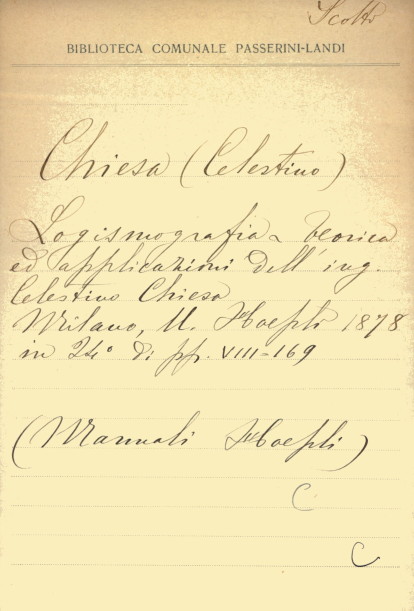 Scotti
BIBLIOTECA COMUNALE PASSERINI-LANDI
Chiesa (Celestino)
Logismografia teorica
ed applicazioni dell'ing.
Celestino Chiesa
Milano, U. Hoepli 1878
in 24° di pp. VIII-169
(Manuali Hoepli)
C
C